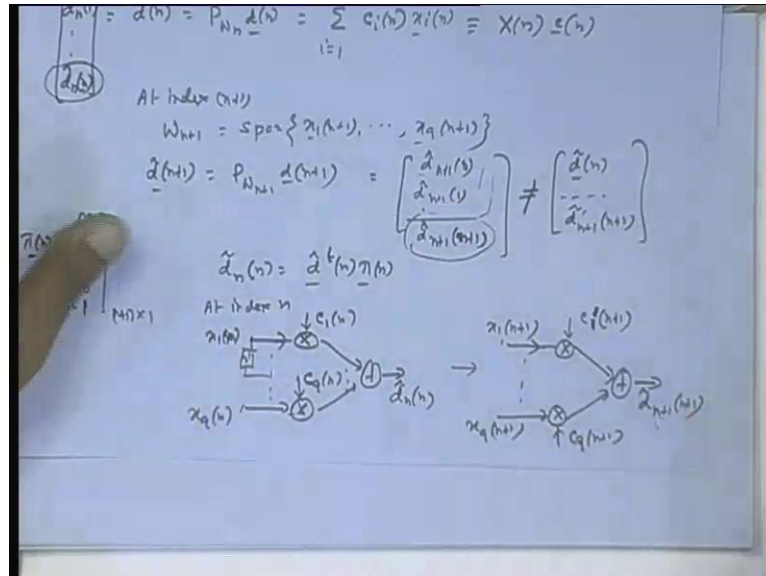 = d̂(n) = P_{W_n} d(n) = Σ_{i=1} c_i(n) x_i(n) ≡ X(n) c(n)
d̂_n(n)
At index (n+1)
W_{n+1} = span{x_1(n+1), ..., x_q(n+1)}
d̂(n+1) = P_{W_{n+1}} d(n+1) = [d̂_{n+1}(0) d̂_{n+1}(1) d̂_{n+1}(n+1)] ≠ [d̂(n) .... d̂_{n+1}(n+1)]
π(n)
1 (n+1)×1
d̂_n(n) = d̂^t(n) π(n)
At index n
x_1(n) c_1(n)
c_q(n)
x_q(n)
+ d̂_n(n)
→
x_1(n+1) c_1(n+1)
x_q(n+1) c_q(n+1)
+ d̂_{n+1}(n+1)